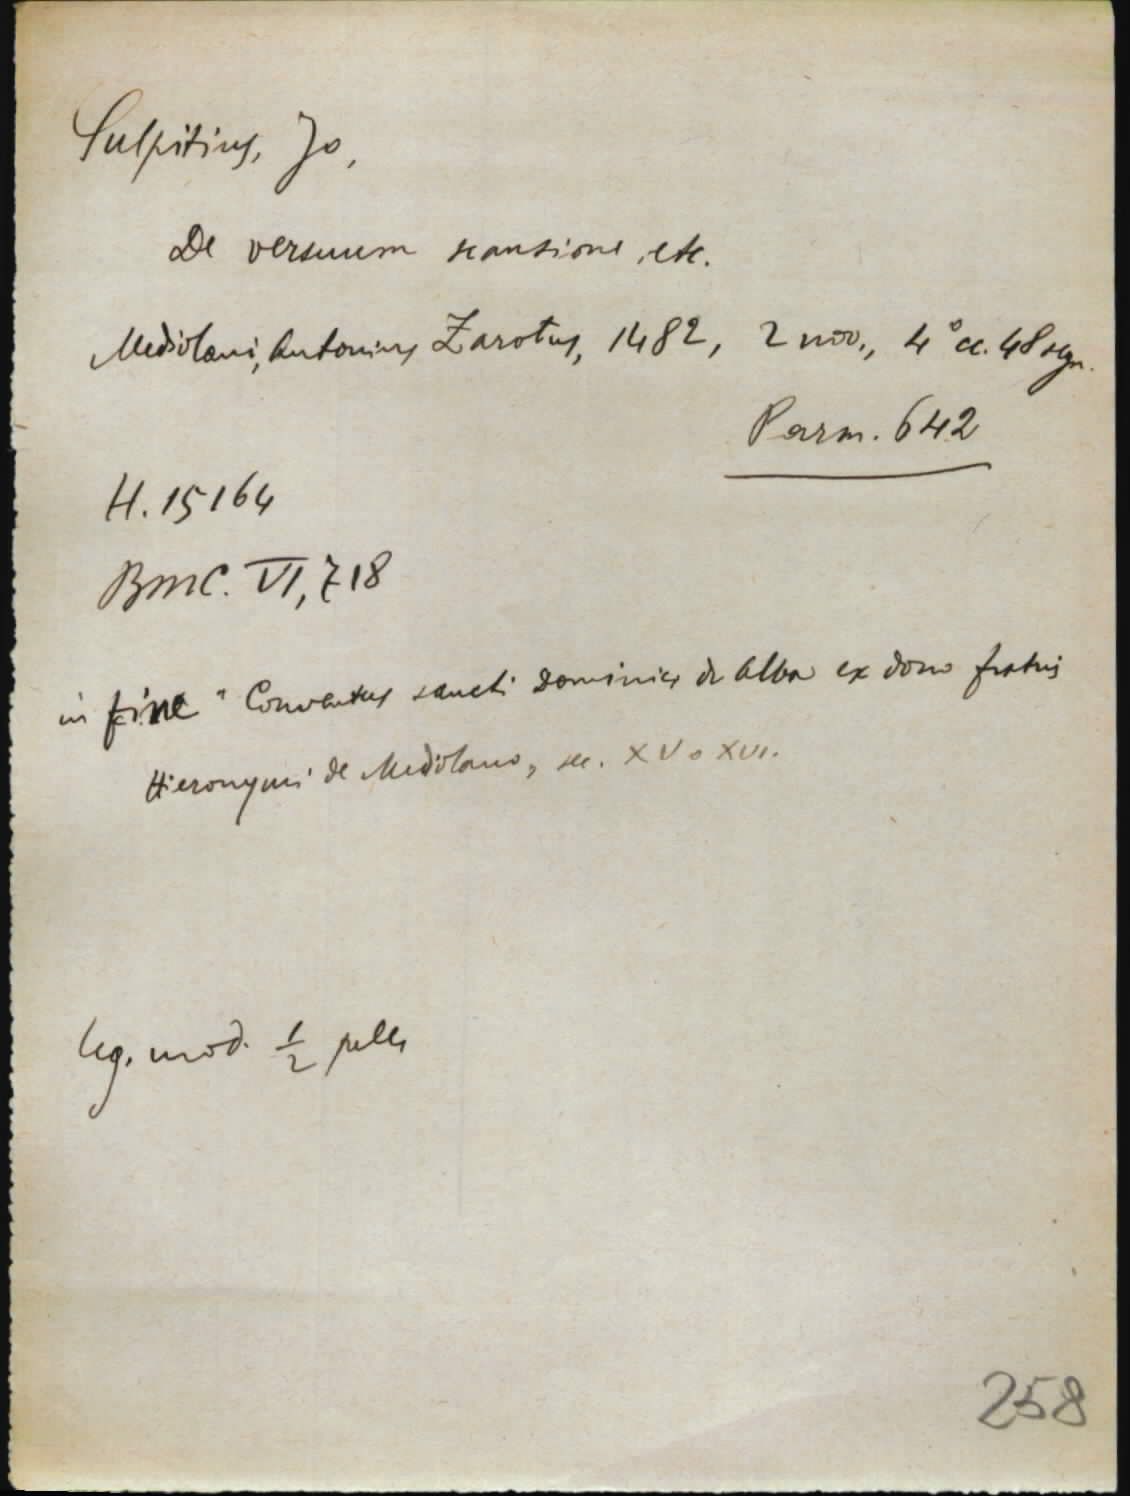 Sulpitius, Jo,
De versuum scansione, etc.
Mediolani, Antonius Zarotus, 1482, 2 nov., 4° cc. 48 sgn.
Parm. 642
H. 15164
BMC. VI, 718
in fine "Conventus sancti Dominici de Alba ex dono fratris
Hieronymi de Mediolano, sec. XV o XVI.
leg. mod. 1/2 pelle
258